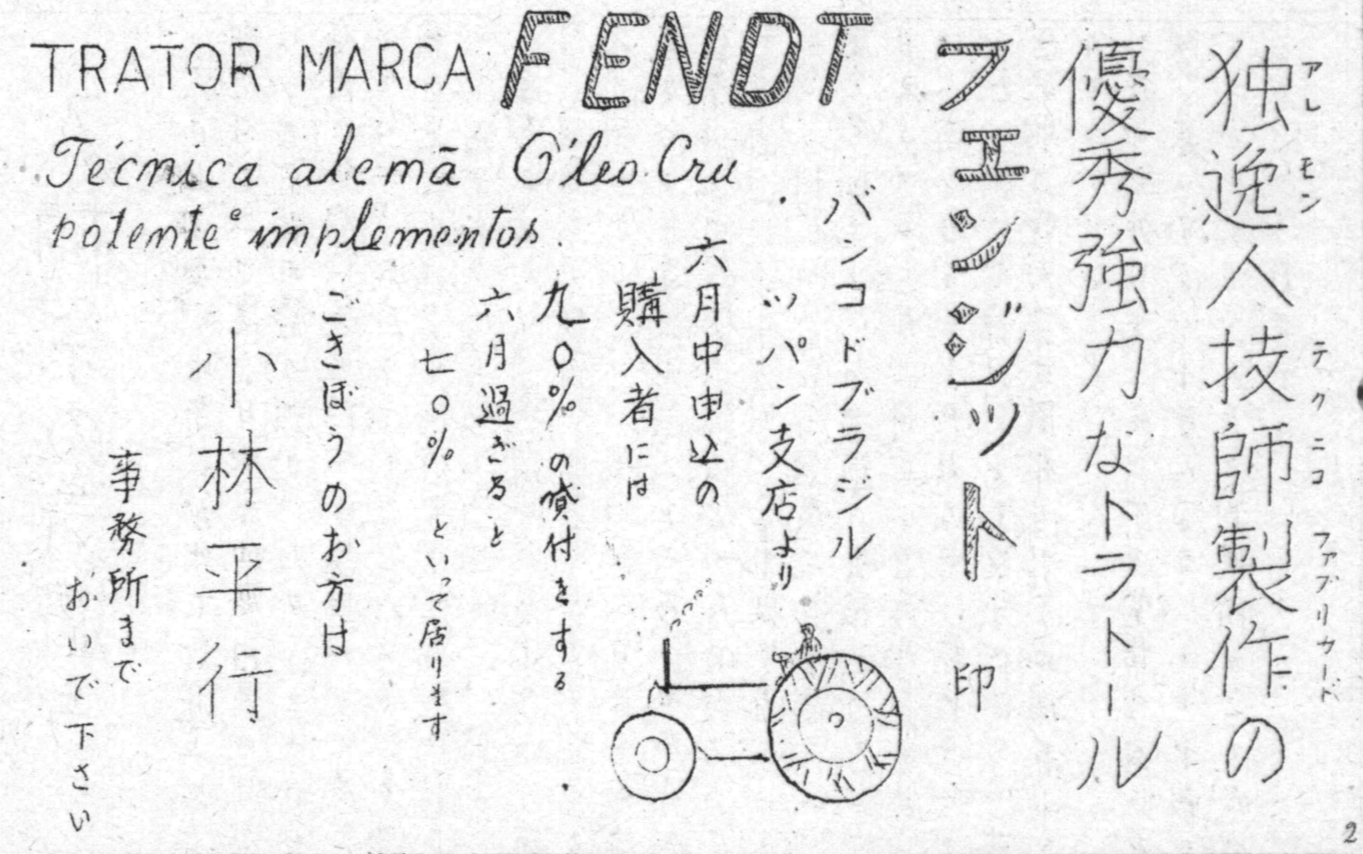 TRATOR MARCA FENDT
Técnica alemã Óleo Cru
potente e implementos.
独逸人技師製作の
アレモン テクニコ ファブリカード
優秀強力なトラトール
フェンジット印
バンコドブラジル
ツパン支店より
六月中申込の
購入者には
九〇%の貸付をする
六月過ぎると
七〇%といって居ります
ごきぼうのお方は
小林平行
事務所まで
おいで下さい
2